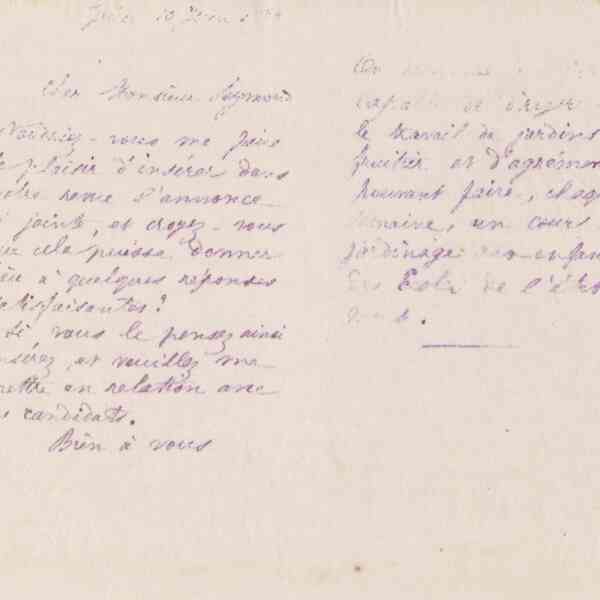 Cher Monsieur Raymond
Voudriez-vous me faire
plaisir d'insérer dans
votre revue l'annonce
joint, et croyez-vous
que cela puisse donner
à quelques réponses
satisfaisantes?
Si vous le pensez ainsi
insérez, et veuillez me
mettre en relation avec
candidats.
Bien à vous
On
capable de diriger
le travail de jardins
fruitier et d'agrément
pouvant faire, chaque
semaine, un cours
jardinage aux enfants
de l'
.